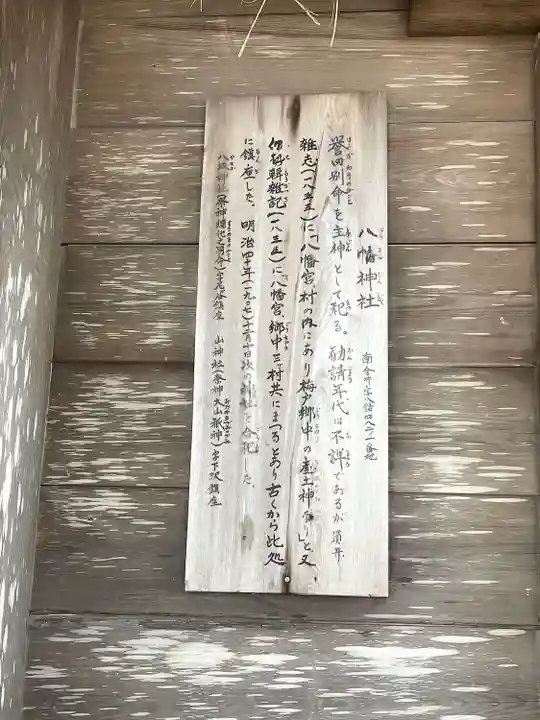 八幡神社
南金井字八幡四八六ノ一番地
誉田別命を主神として祀る。勧請年代は不詳であるが員弁
雑志(一八五五)に「八幡宮、村の内にあり梅戸郷中の産土神なり」と又
伊勢輯雑記(一八三五)に「八幡宮、郷中三村共にまつる」とあり古くから此処
に鎮座した。明治四十年(一九〇七)十二月十日次の神社を合祀した。
八坂神社(祭神 之男命)字尾谷鎮座 山神社(祭神大山祇神)字下沢鎮座